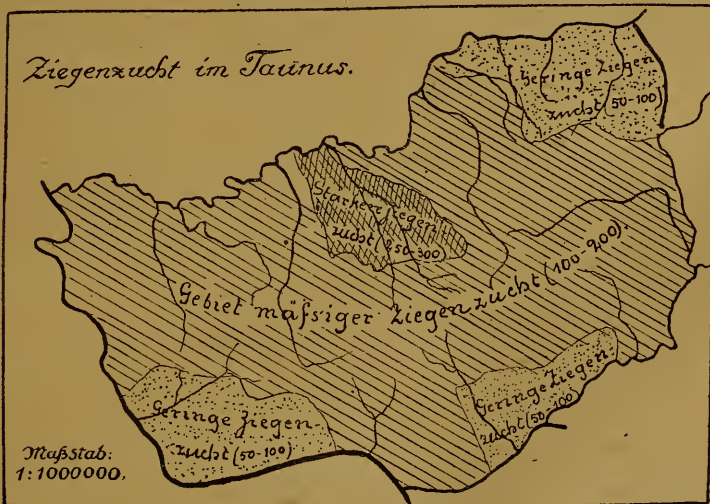 Ziegenzucht im Taunus.
Geringe Ziegen
zucht (50-100)
Starkere Ziegen
zucht (250-300)
Gebiet mäßsiger Ziegenzucht (100-200).
Geringe Ziegen
zucht (50-100)
Geringe Ziegen-
zucht (50-100)
Maßstab:
1:1000000.